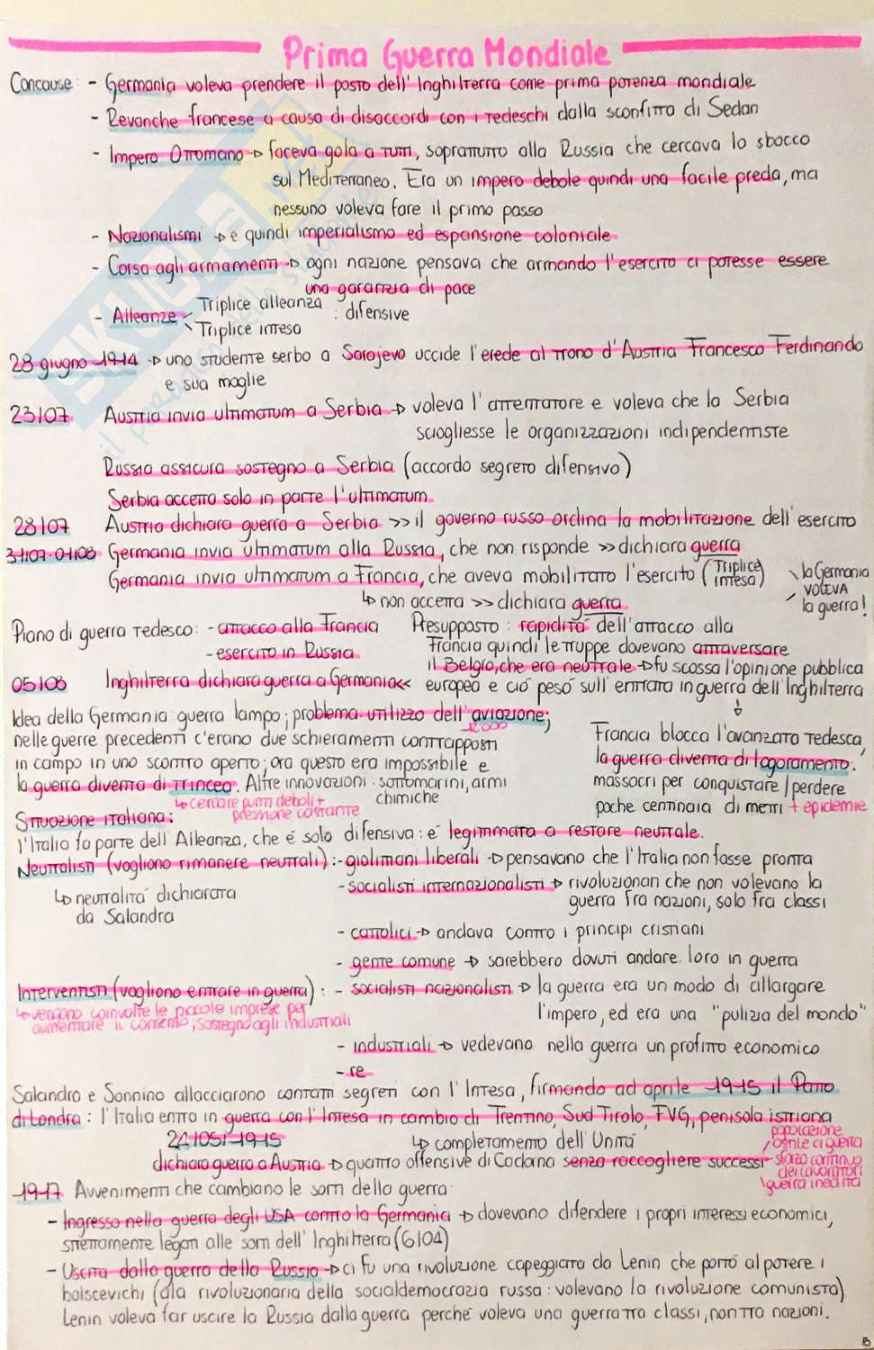 Prima Guerra Mondiale
Concause: - Germania voleva prendere il posto dell'Inghilterra come prima potenza mondiale
- Revanche francese a causa di disaccordi con i tedeschi dalla sconfitta di Sedan
- Impero Ottomano → faceva gola a tutti, soprattutto alla Russia che cercava lo sbocco
sul Mediterraneo. Era un impero debole quindi una facile preda, ma
nessuno voleva fare il primo passo
- Nazionalismi → e quindi imperialismo ed espansione coloniale
- Corsa agli armamenti → ogni nazione pensava che armando l'esercito ci potesse essere
una garanzia di pace
- Alleanze Triplice alleanza : difensive
Triplice intesa
28 giugno 1914 → uno studente serbo a Sarajevo uccide l'erede al trono d'Austria Francesco Ferdinando
e sua moglie
23/07 Austria invia ultimatum a Serbia → voleva l'attentatore e voleva che la Serbia
sciogliesse le organizzazioni indipendentiste
Russia assicura sostegno a Serbia (accordo segreto difensivo)
Serbia accetta solo in parte l'ultimatum.
28/07 Austria dichiara guerra a Serbia >> il governo russo ordina la mobilitazione dell'esercito
31/07-01/08 Germania invia ultimatum alla Russia, che non risponde >> dichiara guerra
Germania invia ultimatum a Francia, che aveva mobilitato l'esercito (Triplice intesa)
↳ non accetta >> dichiara guerra
la Germania
voleva
la guerra!
Piano di guerra tedesco: - attacco alla Francia
- esercito in Russia
Presupposto: rapidità dell'attacco alla
Francia quindi le truppe dovevano attraversare
il Belgio, che era neutrale → fu scossa l'opinione pubblica
05/08 Inghilterra dichiara guerra a Germania << europea e ciò pesò sull'entrata in guerra dell'Inghilterra
Idea della Germania guerra lampo; problema utilizzo dell'aviazione;
nelle guerre precedenti c'erano due schieramenti contrapposti
in campo in uno scontro aperto; ora questo era impossibile e
la guerra diventa di trincea. Altre innovazioni: sottomarini, armi
chimiche
↳ cercare punti deboli +
pressione costante
↓
Francia blocca l'avanzata tedesca,
la guerra diventa di logoramento:
massacri per conquistare/perdere
poche centinaia di metri + epidemie
Situazione italiana:
l'Italia fa parte dell'Alleanza, che è solo difensiva: è legittimata a restare neutrale.
Neutralisti (vogliono rimanere neutrali): - giolittiani liberali → pensavano che l'Italia non fosse pronta
↳ neutralità dichiarata
da Salandra
- socialisti internazionalisti → rivoluzionari che non volevano la
guerra fra nazioni, solo fra classi
- cattolici → andava contro i principi cristiani
- gente comune → sarebbero dovuti andare loro in guerra
Interventisti (vogliono entrare in guerra): - socialisti nazionalisti → la guerra era un modo di allargare
l'impero, ed era una "pulizia del mondo"
↳ vengono coinvolte le piccole imprese per
aumentare il consenso, sostegno agli industriali
- industriali → vedevano nella guerra un profitto economico
- re
Salandra e Sonnino allacciarono contatti segreti con l'Intesa, firmando ad aprile 1915 il Patto
di Londra: l'Italia entra in guerra con l'Intesa in cambio di Trentino, Sud Tirolo, FVG, penisola istriana
24/05/1915 ↳ completamento dell'Unità
dichiara guerra a Austria → quattro offensive di Cadorna senza raccogliere successi
popolazione
ostile a guerra
sforzo continuo
dei lavoratori
guerra inedita
1917 Avvenimenti che cambiano le sorti della guerra:
- Ingresso nella guerra degli USA contro la Germania → dovevano difendere i propri interessi economici,
strettamente legati alle sorti dell'Inghilterra (6/04)
- Uscita dalla guerra della Russia → ci fu una rivoluzione capeggiata da Lenin che portò al potere i
bolscevichi (ala rivoluzionaria della socialdemocrazia russa: volevano la rivoluzione comunista)
Lenin voleva far uscire la Russia dalla guerra perché voleva una guerra tra classi, non tra nazioni.